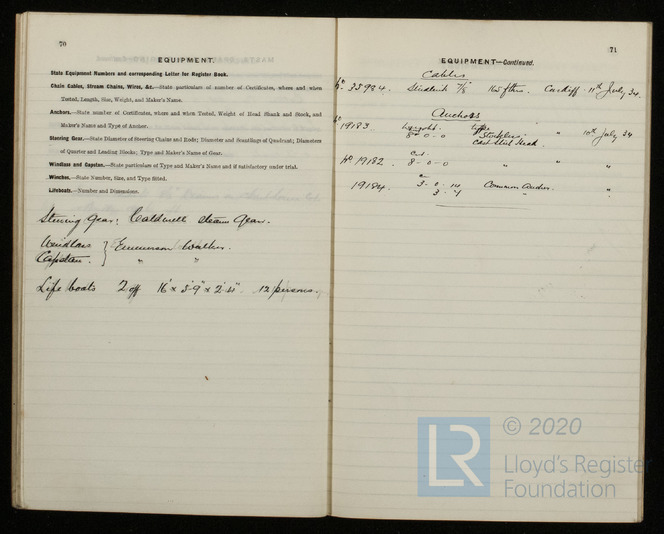 70
EQUIPMENT.
State Equipment Numbers and corresponding Letter for Register Book.
Chain Cables, Stream Chains, Wires, &c.—State particulars of number of Certificates, where and when
Tested, Length, Size, Weight, and Maker's Name.
Anchors.—State number of Certificates, where and when Tested, Weight of Head Shank and Stock, and
Maker's Name and Type of Anchor.
Steering Gear.—State Diameter of Steering Chains and Rods; Diameter and Scantlings of Quadrant; Diameters
of Quarter and Leading Blocks; Type and Maker's Name of Gear.
Windlass and Capstan.—State particulars of Type and Maker's Name and if satisfactory under trial.
Winches.—State Number, Size, and Type fitted.
Lifeboats.—Number and Dimensions.
Steering Gear: Caldwell steam Gear.
Windlass } Emmerson Walker.
Capstan. } " "
Life boats 2 off 16' x 5'-9" x 2'-4". 12 persons.
71
EQUIPMENT—Continued.
Cables
No 35934. Studlink 7/8" 165 fthms. Cardiff. 11th July 34.
Anchors
No 19183 weight. type " 10th July 34
8-0-0 Stockless
Cast Steel Head.
No 19182. 8-0-0 " " "
19184. 3-0-14 Common Anchor. "
3-4 "
© 2020
LR
Lloyd's Register
Foundation